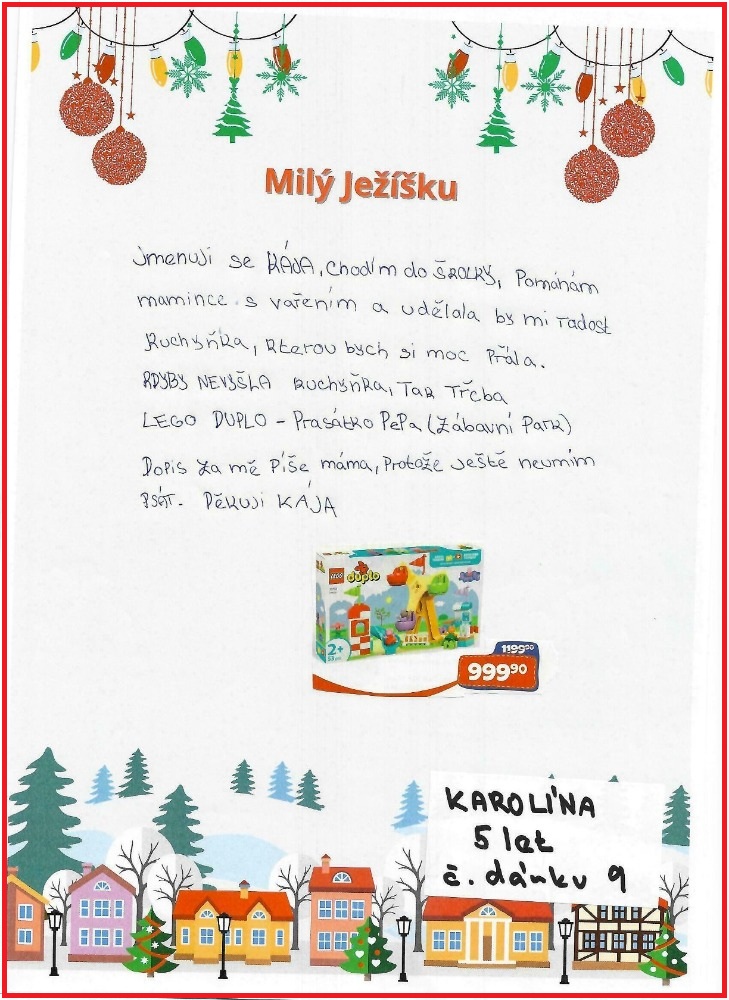 Milý Ježíšku
Jmenuji se KÁJA, chodím do ŠKOLKY, Pomáhám
mamince s vařením a udělala by mi radost
Kuchyňka, kterou bych si moc Přála.
KDYBY NEVYŠLA kuchyňka, Tak Třeba
LEGO DUPLO - Prasátko PePa (Zábavní Park)
Dopis za mě Píše máma, Protože ještě neumím
PSÁT. Děkuji KÁJA
LEGO duplo
2+
1199⁹⁰
999⁹⁰
KAROLÍNA
5 let
č. dárku 9